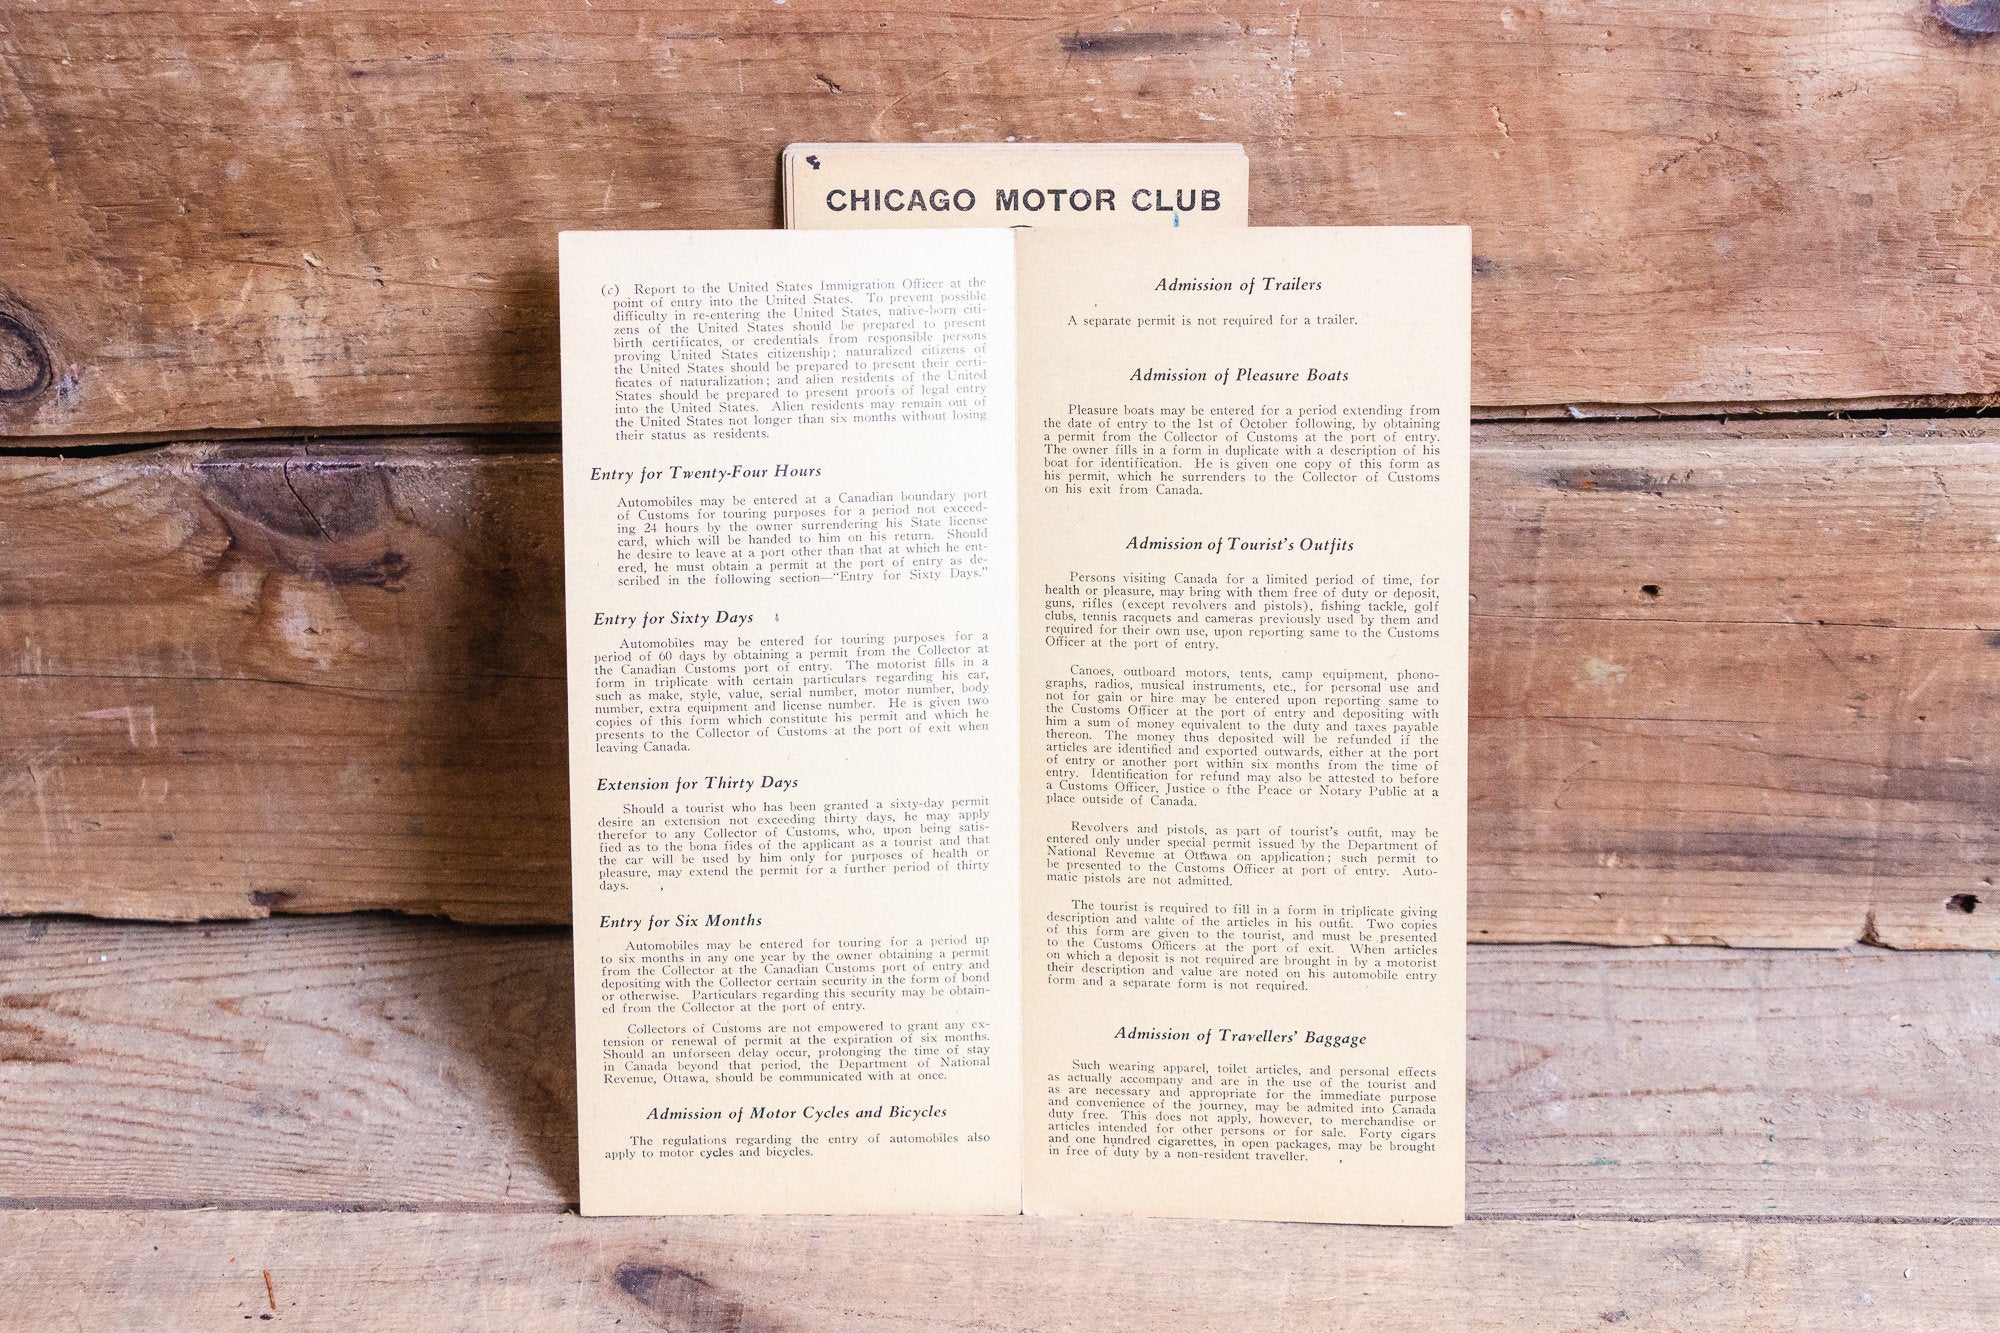 CHICAGO MOTOR CLUB
(c) Report to the United States Immigration Officer at the
point of entry into the United States. To prevent possible
difficulty in re-entering the United States, native-born citi-
zens of the United States should be prepared to present
birth certificates, or credentials from responsible persons
proving United States citizenship; naturalized citizens of
the United States should be prepared to present their certi-
ficates of naturalization; and alien residents of the United
States should be prepared to present proofs of legal entry
into the United States. Alien residents may remain out of
the United States not longer than six months without losing
their status as residents.
Entry for Twenty-Four Hours
Automobiles may be entered at a Canadian boundary port
of Customs for touring purposes for a period not exceed-
ing 24 hours by the owner surrendering his State license
card, which will be handed to him on his return. Should
he desire to leave at a port other than that at which he ent-
ered, he must obtain a permit at the port of entry as de-
scribed in the following section—"Entry for Sixty Days."
Entry for Sixty Days
Automobiles may be entered for touring purposes for a
period of 60 days by obtaining a permit from the Collector at
the Canadian Customs port of entry. The motorist fills in a
form in triplicate with certain particulars regarding his car,
such as make, style, value, serial number, motor number, body
number, extra equipment and license number. He is given two
copies of this form which constitute his permit and which he
presents to the Collector of Customs at the port of exit when
leaving Canada.
Extension for Thirty Days
Should a tourist who has been granted a sixty-day permit
desire an extension not exceeding thirty days, he may apply
therefor to any Collector of Customs, who, upon being satis-
fied as to the bona fides of the applicant as a tourist and that
the car will be used by him only for purposes of health or
pleasure, may extend the permit for a further period of thirty
days.
Entry for Six Months
Automobiles may be entered for touring for a period up
to six months in any one year by the owner obtaining a permit
from the Collector at the Canadian Customs port of entry and
depositing with the Collector certain security in the form of bond
or otherwise. Particulars regarding this security may be obtain-
ed from the Collector at the port of entry.
Collectors of Customs are not empowered to grant any ex-
tension or renewal of permit at the expiration of six months.
Should an unforseen delay occur, prolonging the time of stay
in Canada beyond that period, the Department of National
Revenue, Ottawa, should be communicated with at once.
Admission of Motor Cycles and Bicycles
The regulations regarding the entry of automobiles also
apply to motor cycles and bicycles.
Admission of Trailers
A separate permit is not required for a trailer.
Admission of Pleasure Boats
Pleasure boats may be entered for a period extending from
the date of entry to the 1st of October following, by obtaining
a permit from the Collector of Customs at the port of entry.
The owner fills in a form in duplicate with a description of his
boat for identification. He is given one copy of this form as
his permit, which he surrenders to the Collector of Customs
on his exit from Canada.
Admission of Tourist's Outfits
Persons visiting Canada for a limited period of time, for
health or pleasure, may bring with them free of duty or deposit,
guns, rifles (except revolvers and pistols), fishing tackle, golf
clubs, tennis racquets and cameras previously used by them and
required for their own use, upon reporting same to the Customs
Officer at the port of entry.
Canoes, outboard motors, tents, camp equipment, phono-
graphs, radios, musical instruments, etc., for personal use and
not for gain or hire may be entered upon reporting same to
the Customs Officer at the port of entry and depositing with
him a sum of money equivalent to the duty and taxes payable
thereon. The money thus deposited will be refunded if the
articles are identified and exported outwards, either at the port
of entry or another port within six months from the time of
entry. Identification for refund may also be attested to before
a Customs Officer, Justice o fthe Peace or Notary Public at a
place outside of Canada.
Revolvers and pistols, as part of tourist's outfit, may be
entered only under special permit issued by the Department of
National Revenue at Ottawa on application; such permit to
be presented to the Customs Officer at port of entry. Auto-
matic pistols are not admitted.
The tourist is required to fill in a form in triplicate giving
description and value of the articles in his outfit. Two copies
of this form are given to the tourist, and must be presented
to the Customs Officers at the port of exit. When articles
on which a deposit is not required are brought in by a motorist
their description and value are noted on his automobile entry
form and a separate form is not required.
Admission of Travellers' Baggage
Such wearing apparel, toilet articles, and personal effects
as actually accompany and are in the use of the tourist and
as are necessary and appropriate for the immediate purpose
and convenience of the journey, may be admitted into Canada
duty free. This does not apply, however, to merchandise or
articles intended for other persons or for sale. Forty cigars
and one hundred cigarettes, in open packages, may be brought
in free of duty by a non-resident traveller.